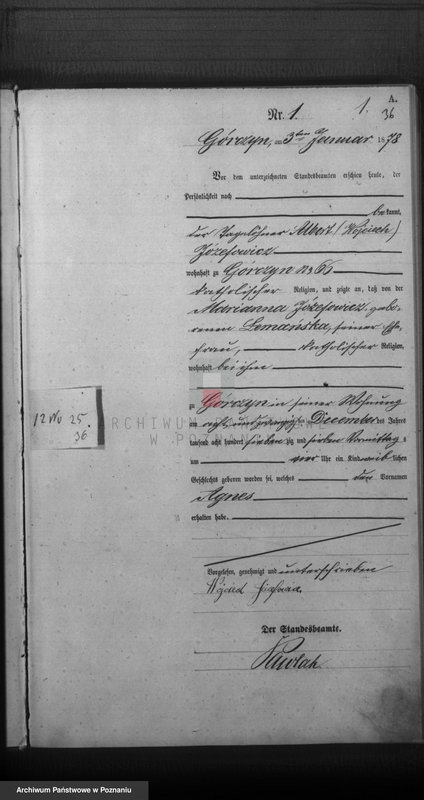 A.
Nr. 1.
1.
36
Górczyn, am 3ten Januar 1878
Vor dem unterzeichneten Standesbeamten erschien heute, der
Persönlichkeit nach
bekannt,
der Tagelöhner Albert (Wojciech)
Józefowicz
wohnhaft zu Górczyn No 66
katholischer Religion, und zeigte an, daß von der
Marianna Józefowicz gebo-
renen Lemańska, seiner Ehe-
frau, katholischer Religion,
wohnhaft bei ihm
zu Górczyn in seiner Wohnung
am acht und zwanzigsten December des Jahres
tausend acht hundert siebenzig und sieben Vormittags
um vier Uhr ein Kind weiblichen
Geschlechts geboren worden sei, welches den Vornamen
Agnes
erhalten habe.
Vorgelesen, genehmigt und unterschrieben
Wojciech
Der Standesbeamte.
Pawlak
12 Wo 25.
36
ARCHIWUM
W POZNANIU
Archiwum Państwowe w Poznaniu